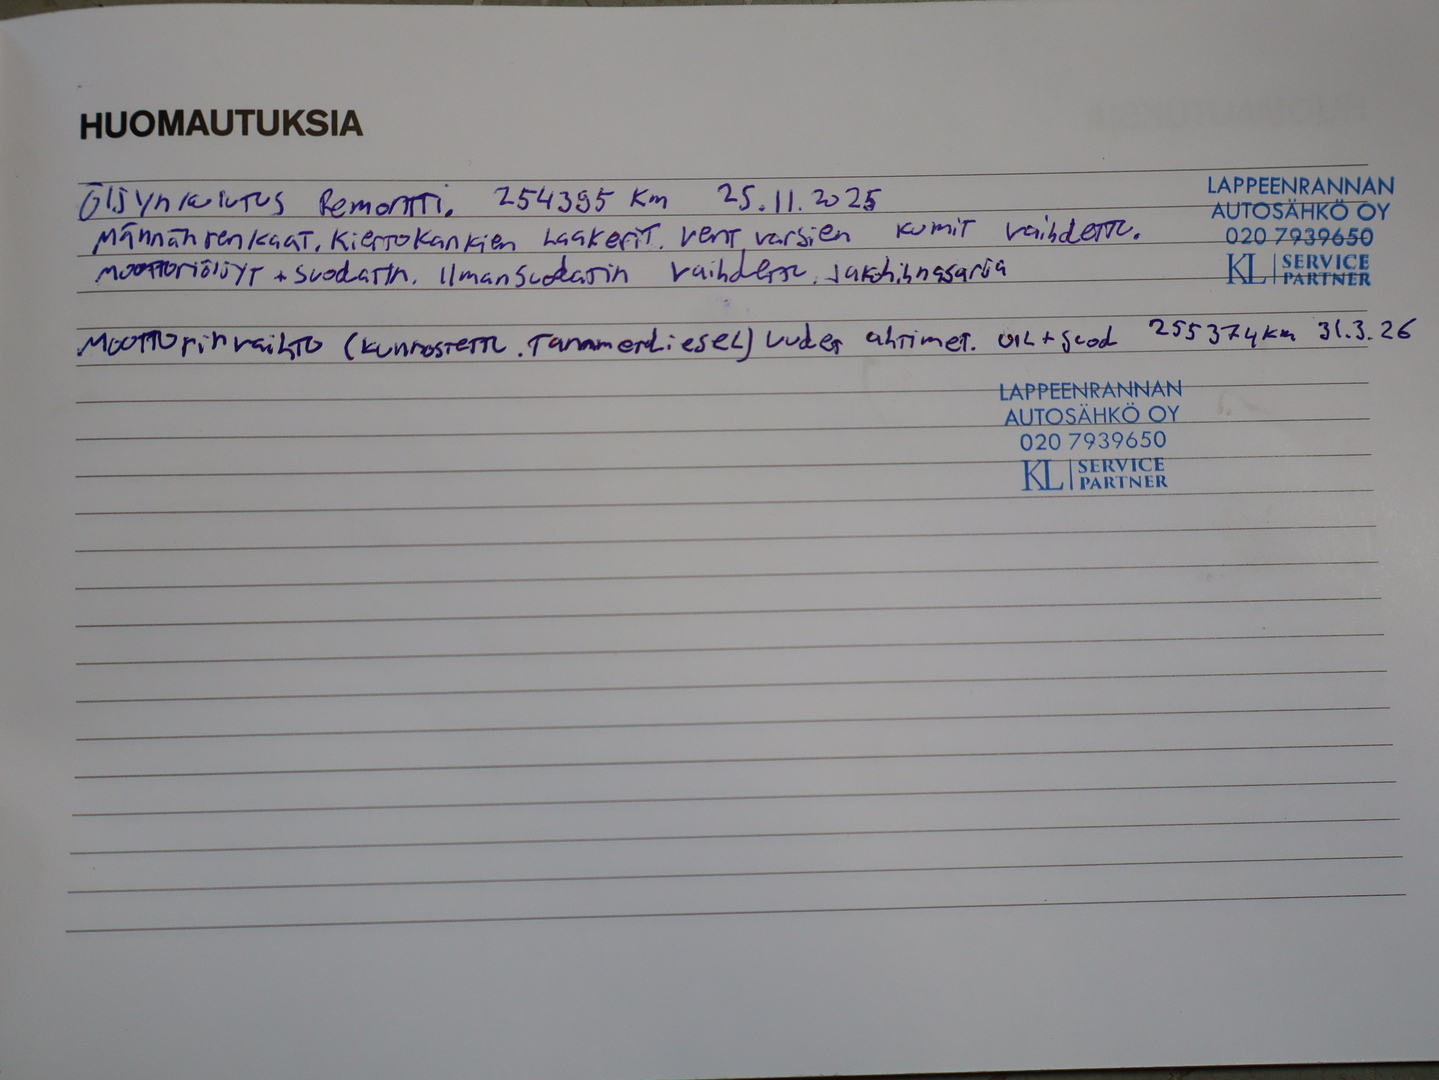 HUOMAUTUKSIA
Öljynkulutus Remontti. 254395 Km 25.11.2025
Männänrenkaat. Kiertokankien Laakerit. vent varsien kumit vaihdettu.
Moottoriöljyt + suodatin. Ilmansuodatin vaihdettu. Jakohihnasarja
LAPPEENRANNAN
AUTOSÄHKÖ OY
020 7939650
KL SERVICE PARTNER
Moottorinvaihto (kunnostettu. Tammerdiesel) uudet ahtimet. OIL + suod 255374 km 31.3.26
LAPPEENRANNAN
AUTOSÄHKÖ OY
020 7939650
KL SERVICE PARTNER